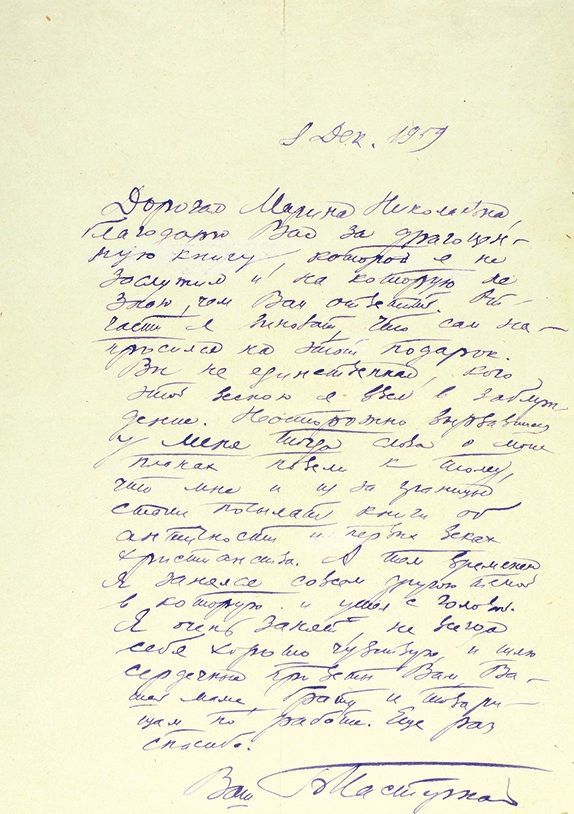 8 Дек. 1959
Дорогая Марина Николаевна,
благодарю Вас за драгоцен-
ную книгу, которой я не
заслужил и на которую не
знаю, чем Вам ответить. От-
части я виноват, что сам на-
просился на этот подарок.
Вы не единственная, кого
этой весною я ввел в заблуж-
дение. Неосторожно вырвавшиеся
у меня тогда слова о моих
планах повели к тому,
что мне и из за границы
стали посылать книги об
античности и первых веках
христианства. А тем временем
я занялся совсем другою темой
в которую и ушел с головой.
Я очень занят, не всегда
себя хорошо чувствую, и шлю
сердечный привет Вам, Ва-
шей маме, брату и товари-
щам по работе. Еще раз
спасибо.
Ваш БПастернак